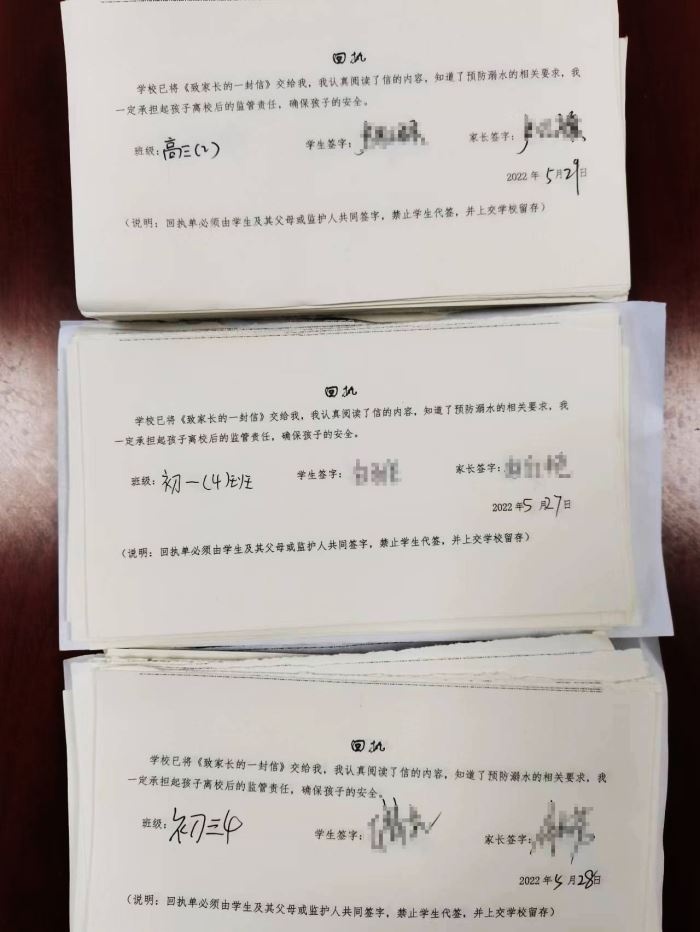 回执
学校已将《致家长的一封信》交给我，我认真阅读了信的内容，知道了预防溺水的相关要求，我
一定承担起孩子离校后的监管责任，确保孩子的安全。
班级：高三(2) 学生签字： 家长签字：
2022 年 5 月 29 日
（说明：回执单必须由学生及其父母或监护人共同签字，禁止学生代签，并上交学校留存）
回执
学校已将《致家长的一封信》交给我，我认真阅读了信的内容，知道了预防溺水的相关要求，我
一定承担起孩子离校后的监管责任，确保孩子的安全。
班级：初一(4)班 学生签字： 家长签字：
2022 年 5 月 27 日
（说明：回执单必须由学生及其父母或监护人共同签字，禁止学生代签，并上交学校留存）
回执
学校已将《致家长的一封信》交给我，我认真阅读了信的内容，知道了预防溺水的相关要求，我
一定承担起孩子离校后的监管责任，确保孩子的安全。
班级：初三4 学生签字： 家长签字：
2022 年 5 月 28 日
（说明：回执单必须由学生及其父母或监护人共同签字，禁止学生代签，并上交学校留存）